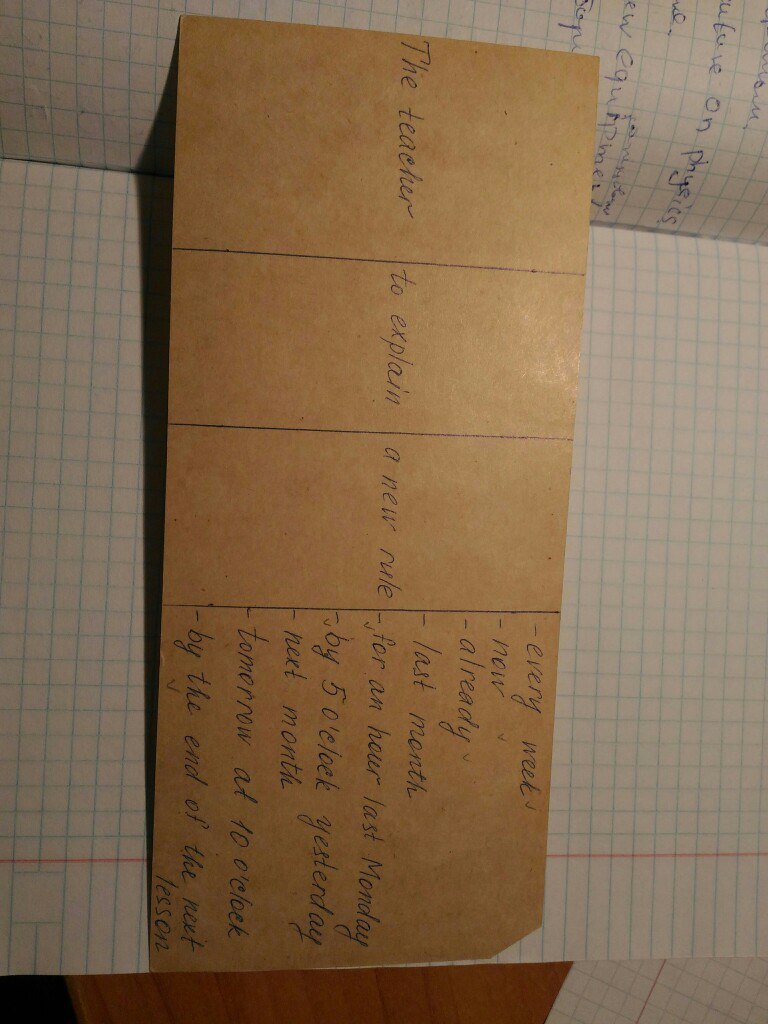 The teacher to explain a new rule
- every week
- now
- already
- last month
- for an hour last Monday
- by 5 o'clock yesterday
- next month
- tomorrow at 10 o'clock
- by the end of the next
lesson
on physics